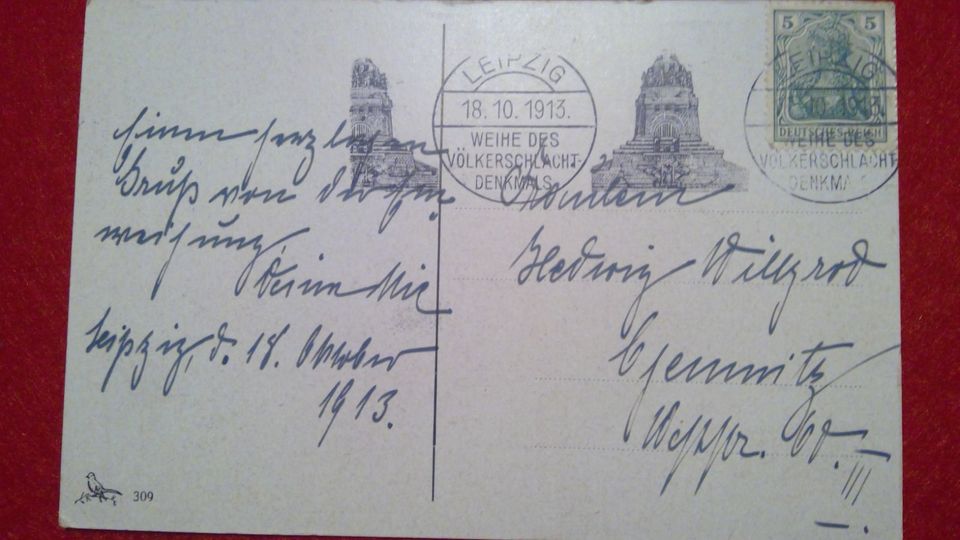 5 5
DEUTSCHES REICH
LEIPZIG
18.10.1913.
WEIHE DES
VÖLKERSCHLACHT-
DENKMALS
LEIPZIG
.10.1913.
WEIHE DES
VÖLKERSCHLACHT
DENKMA
Einen herzlichen
Gruß von der Ein
weihung,
Deine Mie
Leipzig, d. 18. Oktober
1913.
309
Fräulein
Hedwig Willgrod
Chemnitz
Weststr.
III